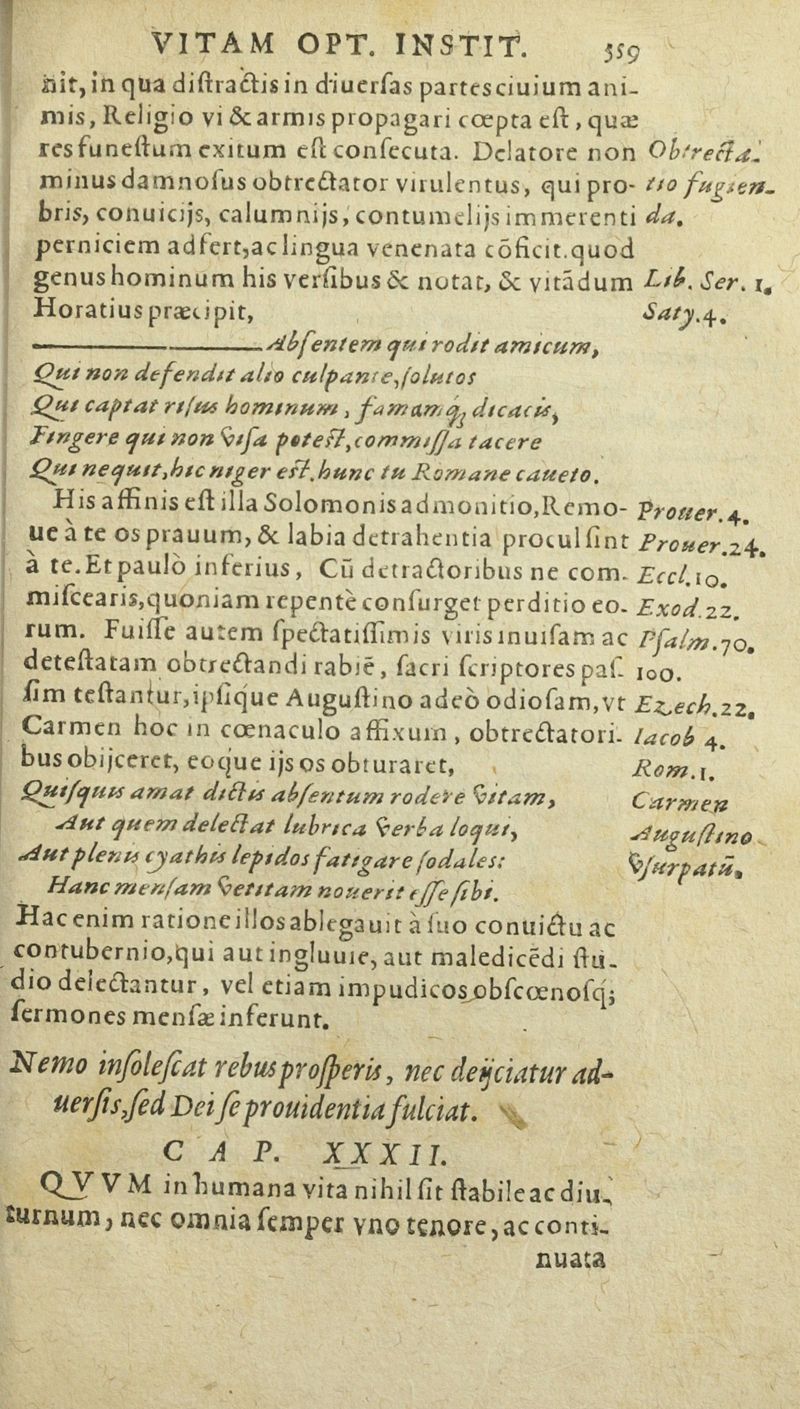 VITAM OPT. INSTIT. 359
nit, in qua diſtractis in diuerſas partes ciuium ani-
mis, Religio vi & armis propagari cœpta eſt, quæ
res funeſtum exitum eſt conſecuta. Delatore non
minus damnoſus obtrectator virulentus, qui pro-
bris, conuicijs, calumnijs, contumelijs immerenti
perniciem adfert, ac lingua venenata cōficit. quod
genus hominum his verſibus & notat, & vitādum
Horatius præcipit,
Obtrecta-
tio fugien-
da.
Lib. Ser. 1.
Saty. 4.
Abſentem qui rodit amicum,
Qui non defendit alio culpante, ſolutos
Qui captat riſus hominum, famamq; dicacis,
Fingere qui non viſa poteſt, commiſſa tacere
Qui nequit, hic niger eſt. hunc tu Romane caueto.
His affinis eſt illa Solomonis admonitio, Remo-
ue à te os prauum, & labia detrahentia procul ſint
à te. Et paulò inferius, Cū detractoribus ne com-
miſcearis, quoniam repentè conſurget perditio eo-
rum. Fuiſſe autem ſpectatiſſimis viris inuiſam ac
deteſtatam obtrectandi rabiē, ſacri ſcriptores paſ-
ſim teſtantur, ipſique Auguſtino adeò odioſam, vt
Carmen hoc in cœnaculo affixum, obtrectatori-
bus obijceret, eoque ijs os obturaret,
Prouer. 4.
Prouer. 24.
Eccl. 10.
Exod. 22.
Pſalm. 70.
100.
Ezech. 22.
Iacob 4.
Rom. 1.
Quiſquis amat dictis abſentum rodere vitam,
Aut quem delectat lubrica verba loqui,
Aut plenis cyathis lepidos fatigare ſodales:
Hanc menſam vetitam nouerit eſſe ſibi.
Carmen
Auguſtino
vſurpatū.
Hac enim ratione illos ablegauit à ſuo conuictu ac
contubernio, qui aut ingluuie, aut maledicēdi ſtu-
dio delectantur, vel etiam impudicos obſcœnoſq;
ſermones menſæ inferunt.
Nemo inſoleſcat rebus proſperis, nec deijciatur ad-
uerſis, ſed Dei ſe prouidentia fulciat.
CAP. XXXII.
QVVM in humana vita nihil ſit ſtabile ac diu-
turnum, nec omnia ſemper vno tenore, ac conti-
nuata